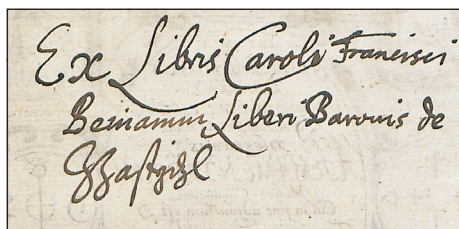 Ex Libris Caroli Francisci
Beniamin Liberi Baronis de